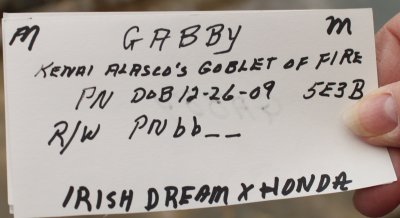 M GABBY M
KENAI ALASCO'S GOBLET OF FIRE
PN DOB 12-26-09 5E3B
R/W PNbb__
IRISH DREAM X HONDA